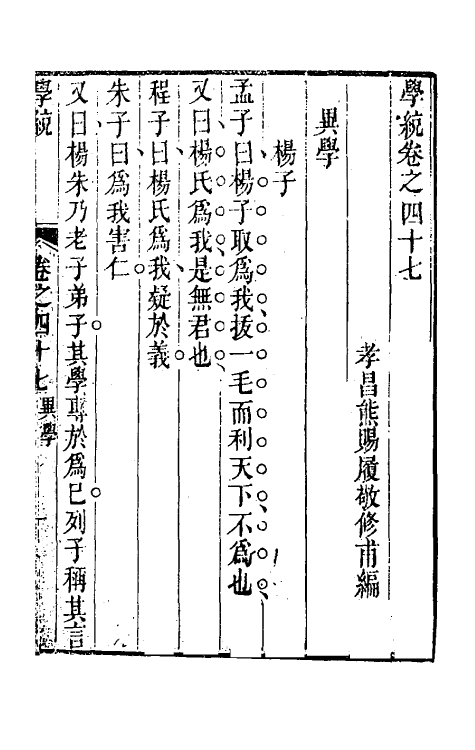 學統卷之四十七
孝昌熊賜履敬修甫編
異學
楊子
孟子曰楊子取爲我拔一毛而利天下不爲也
又曰楊氏爲我是無君也
程子曰楊氏爲我疑於義
朱子曰爲我害仁
又曰楊朱乃老子弟子其學專於爲己列子稱其言
學統
卷之四十七
異學